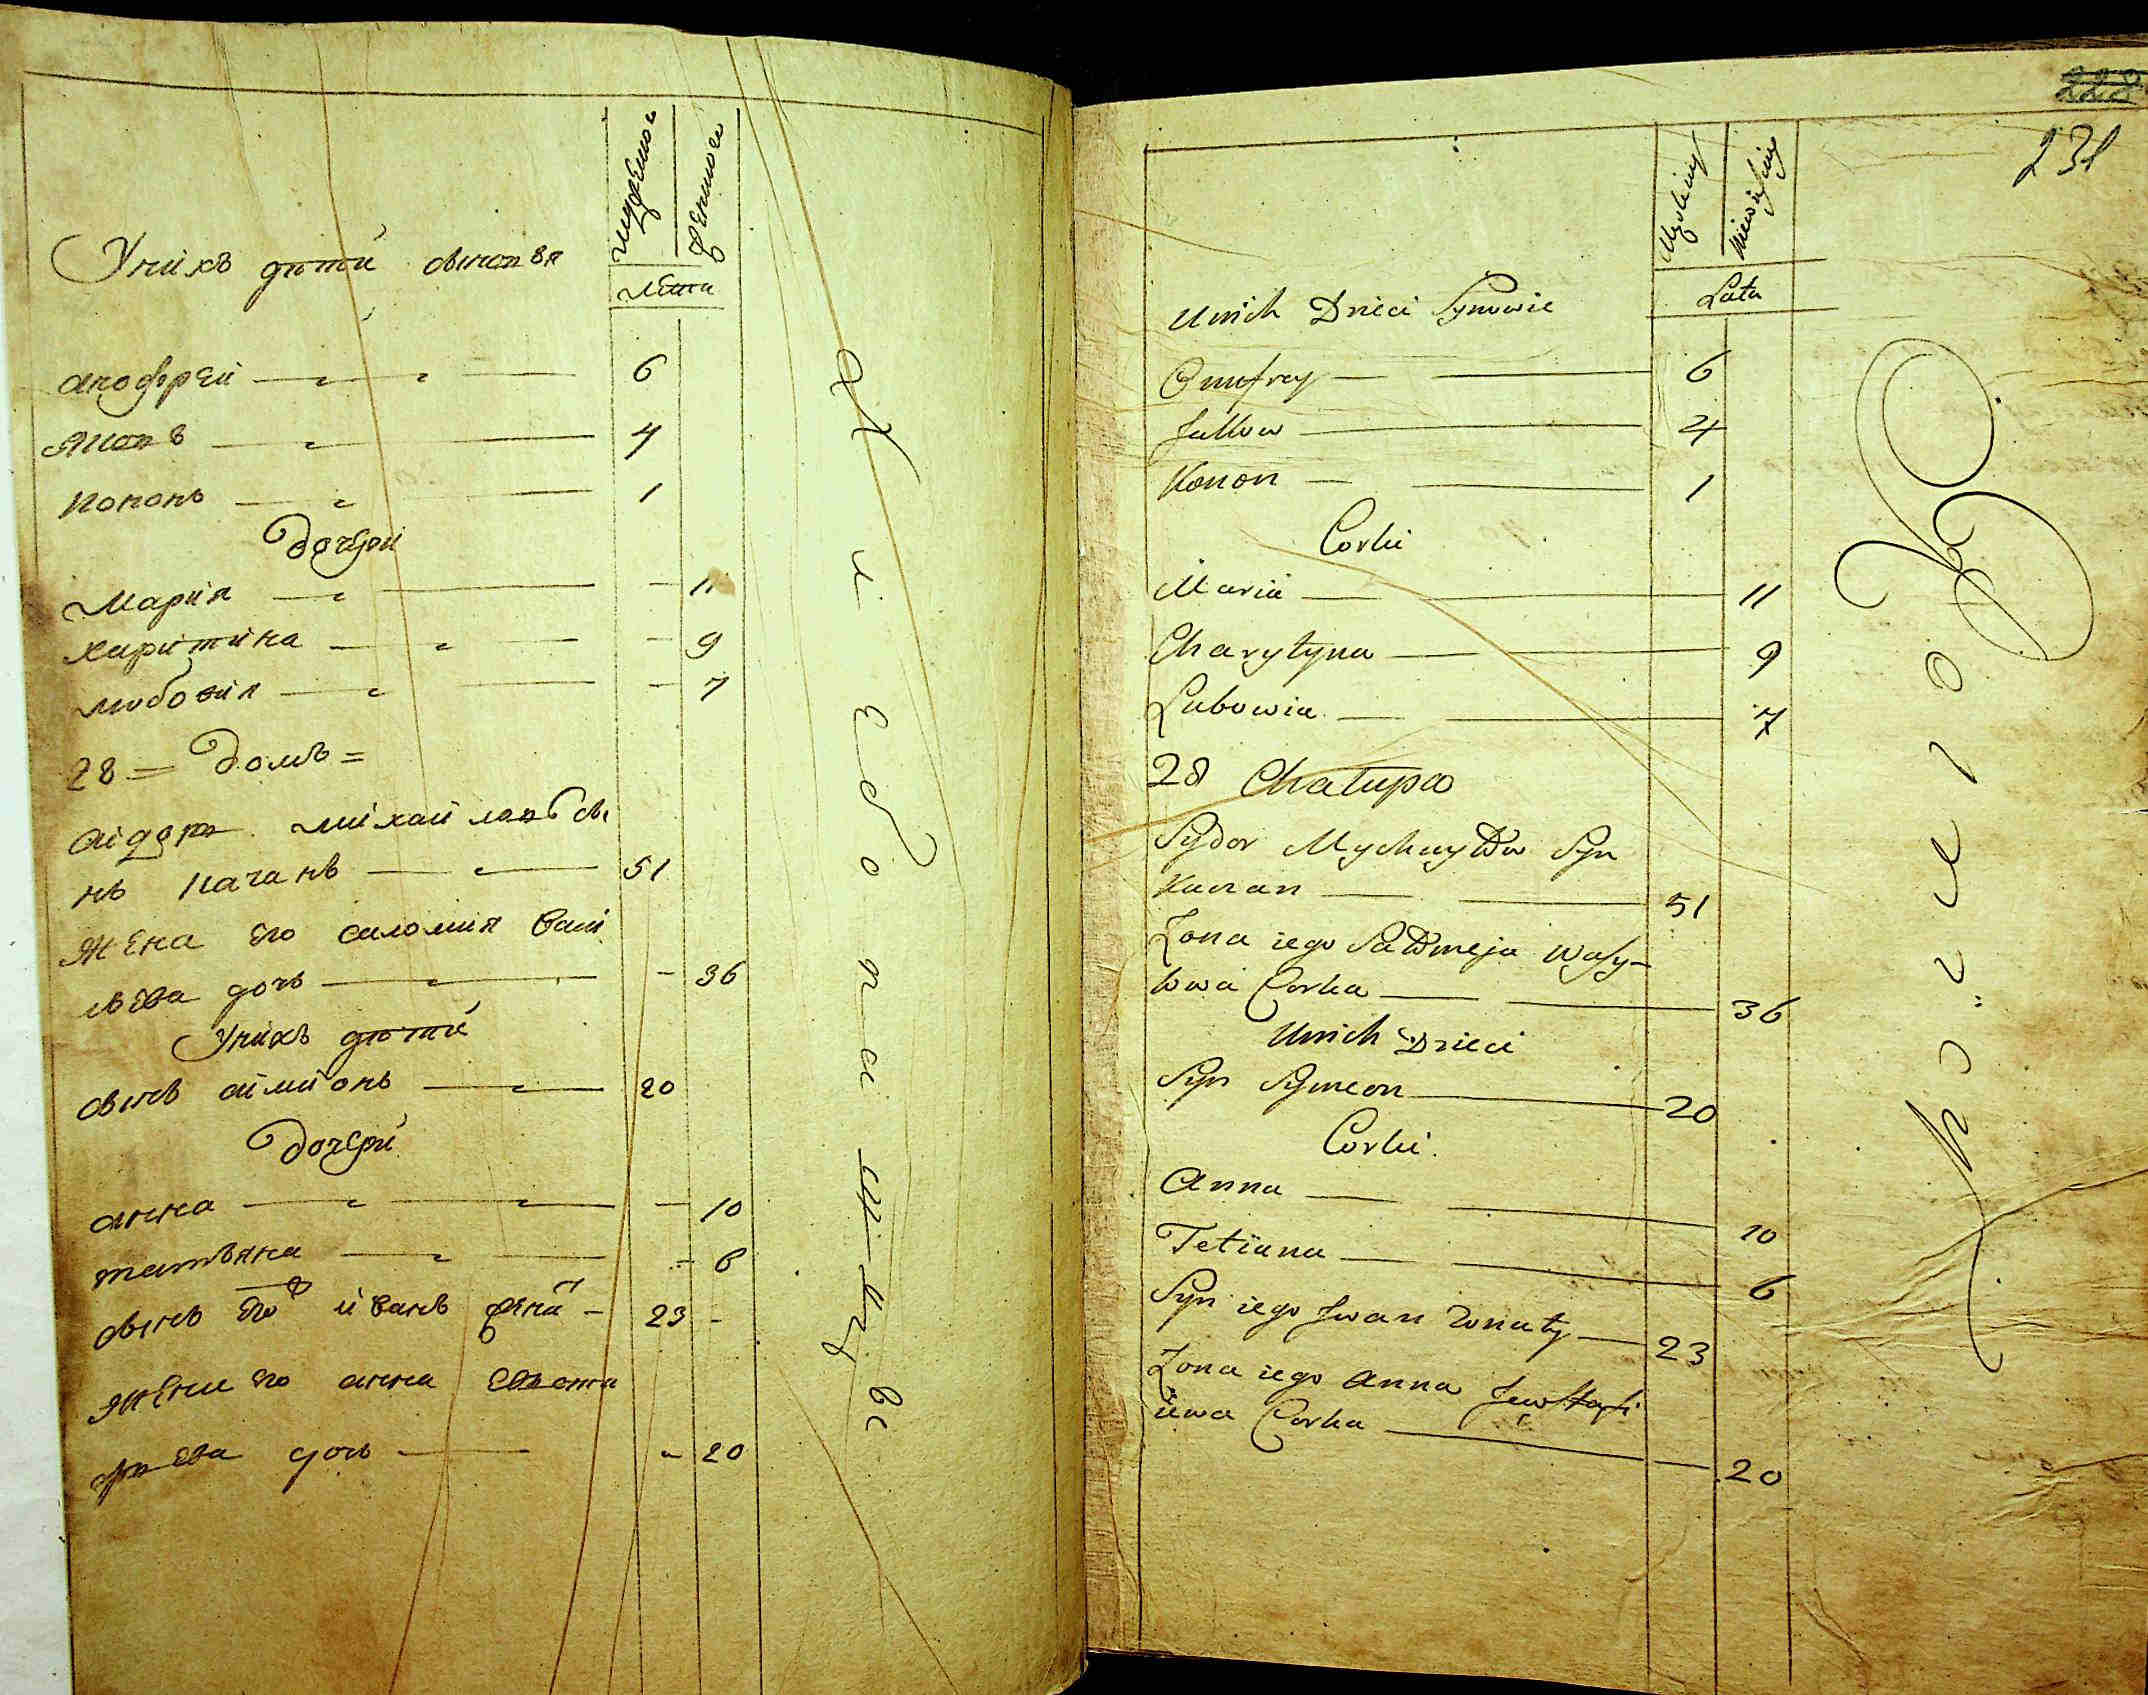 Унихъ дѣти сыновя
мужеска
женска
лѣта
анофрей 6
яковъ 4
кононъ 1
дочери
Мария 11
харитина 9
любовия 7
28 = домъ =
сидоръ михайловъ сы
нъ качанъ 51
жена его саломия васи
льева дочь 36
Унихъ дѣти
сынъ симионъ 20
дочери
анна 10
татьяна 6
сынъ его иванъ жена 23
жена его анна евста
фьева дочь 20
228
231
Męsciny
Niewiasciny
Lata
Unich Dzieci Synowie
Onufrey 6
Jakow 4
Konon 1
Corki
Maria 11
Charytyna 9
Lubowia 7
28 Chatupa
Sydor Mychayłow Syn
Kaczan 51
Zona iego Sałomeja Wasy-
lowa Corka 36
Unich Dzieci
Syn Symeon 20
Corki
Anna 10
Tetiana 6
Syn iego Jwan Zonaty 23
Zona iego Anna Jewstafi
iewa Corka 20